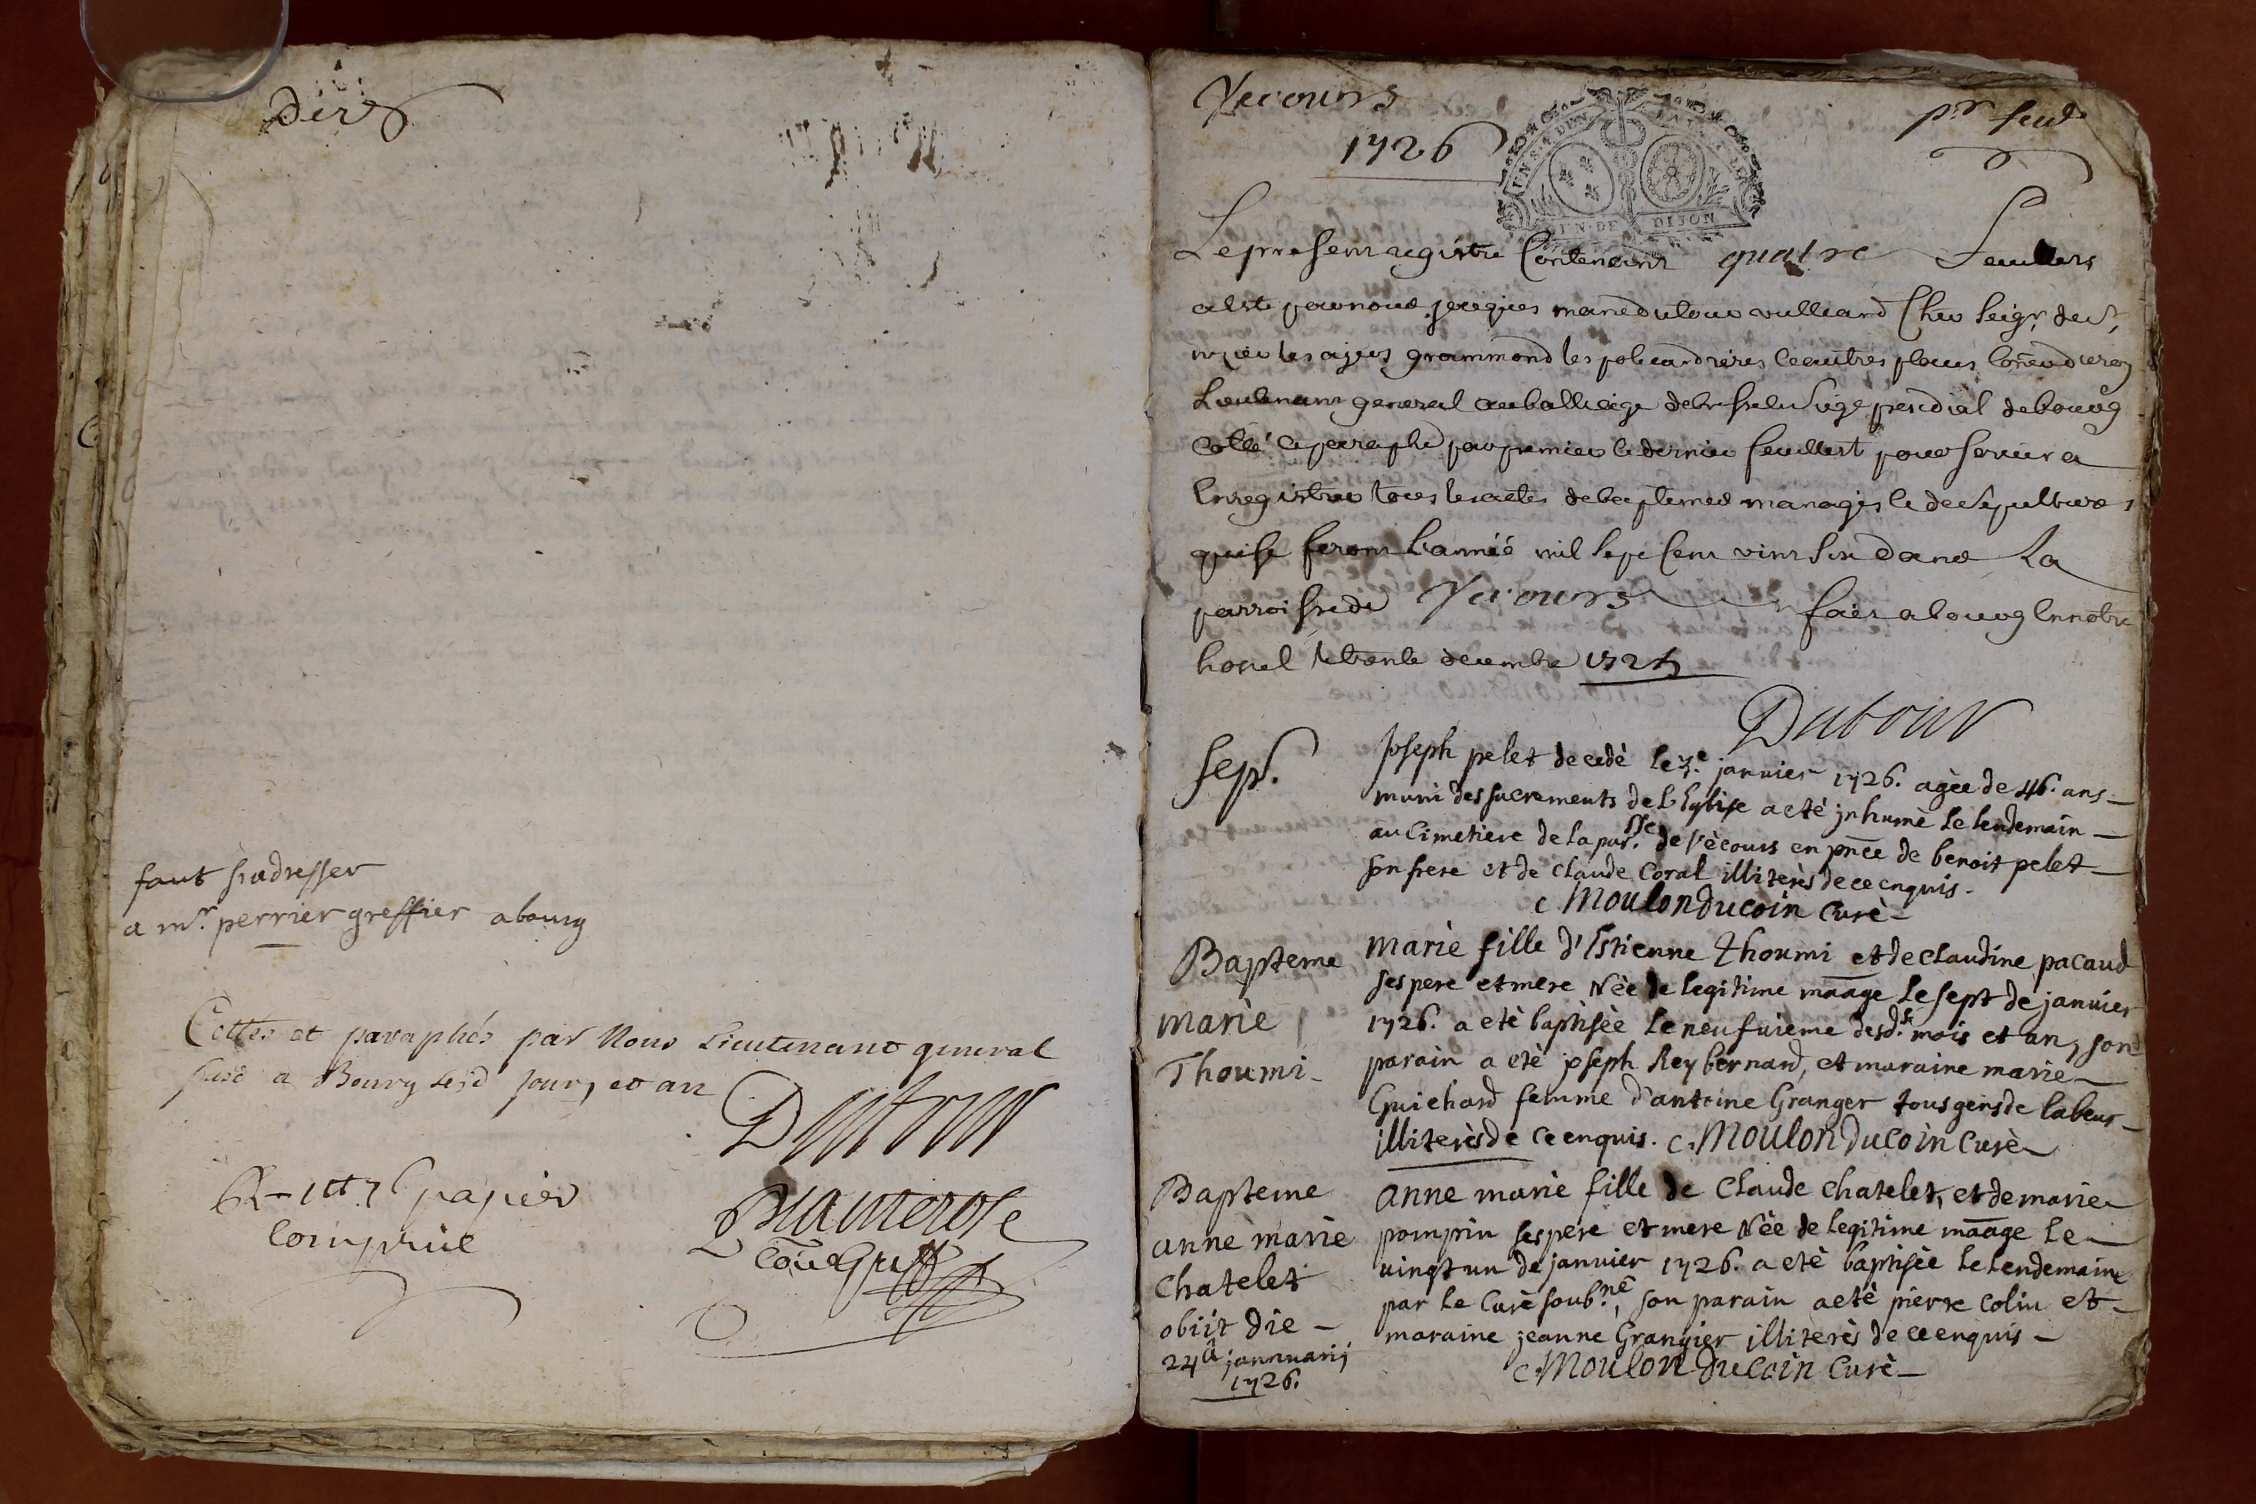 der
faut s'adresser
a mr. perrier greffier a bourg
Cottés et paraphés par Nous Lieutenant general
susd a Bourg lesd jour, et an
Dutour
papier
compris
Vecours
1726
pr feuil
GEN. DE DIJON
Le present registre Contenant quatre feuillets
a esté par nous jacques marie dutour vulliard Chr seigr de St
les autres places Conser du roy
Lieutenant general au balliage de bresse siege presidial de bourg
cotté et paraphé par premier et dernier feuillet pour servir a
Enregistrer tous les actes de baptemes mariages et de sepultures
qui se feront l'année mil sept cent vint six dans La
parroisse de Vecours fait a bourg en notre
hotel le trente decembre 1725
Dutour
sep.
joseph pelet decedè le 3e. janvier 1726. agèe de 46. ans
muni des sacrements de l'Eglise a etè jnhumè le lendemain
au Cimetiere de la parsse. de Vècours en pñce de benoit pelet
son frere et de claude Coral illiterès de ce enquis.
c Moulon ducoin Curè
Bapteme
marie
Thoumi
marie fille d'Estienne Thoumi et de claudine pacaud
ses pere et mere Nèe de legitime maage le sept de janvier
1726. a etè baptisèe le neufuieme desds. mois et an, son
parain a etè joseph Rey bernard, et maraine marie
Guichard femme d'antoine Granger tous gens de labeur
illiterès de ce enquis. c. Moulon ducoin Curè
Bapteme
anne marie
Chatelet
obiit die
24a jannuarij
1726.
anne marie fille de Claude chatelet, et de marie
pomprin ses pere et mere Nèe de legitime maage le
vingt un de janvier 1726. a etè baptisèe le lendemain
par le Curè soub.né, son parain a etè pierre colin et
maraine jeanne Grangier illiterès de ce enquis
c. Moulon ducoin Curè